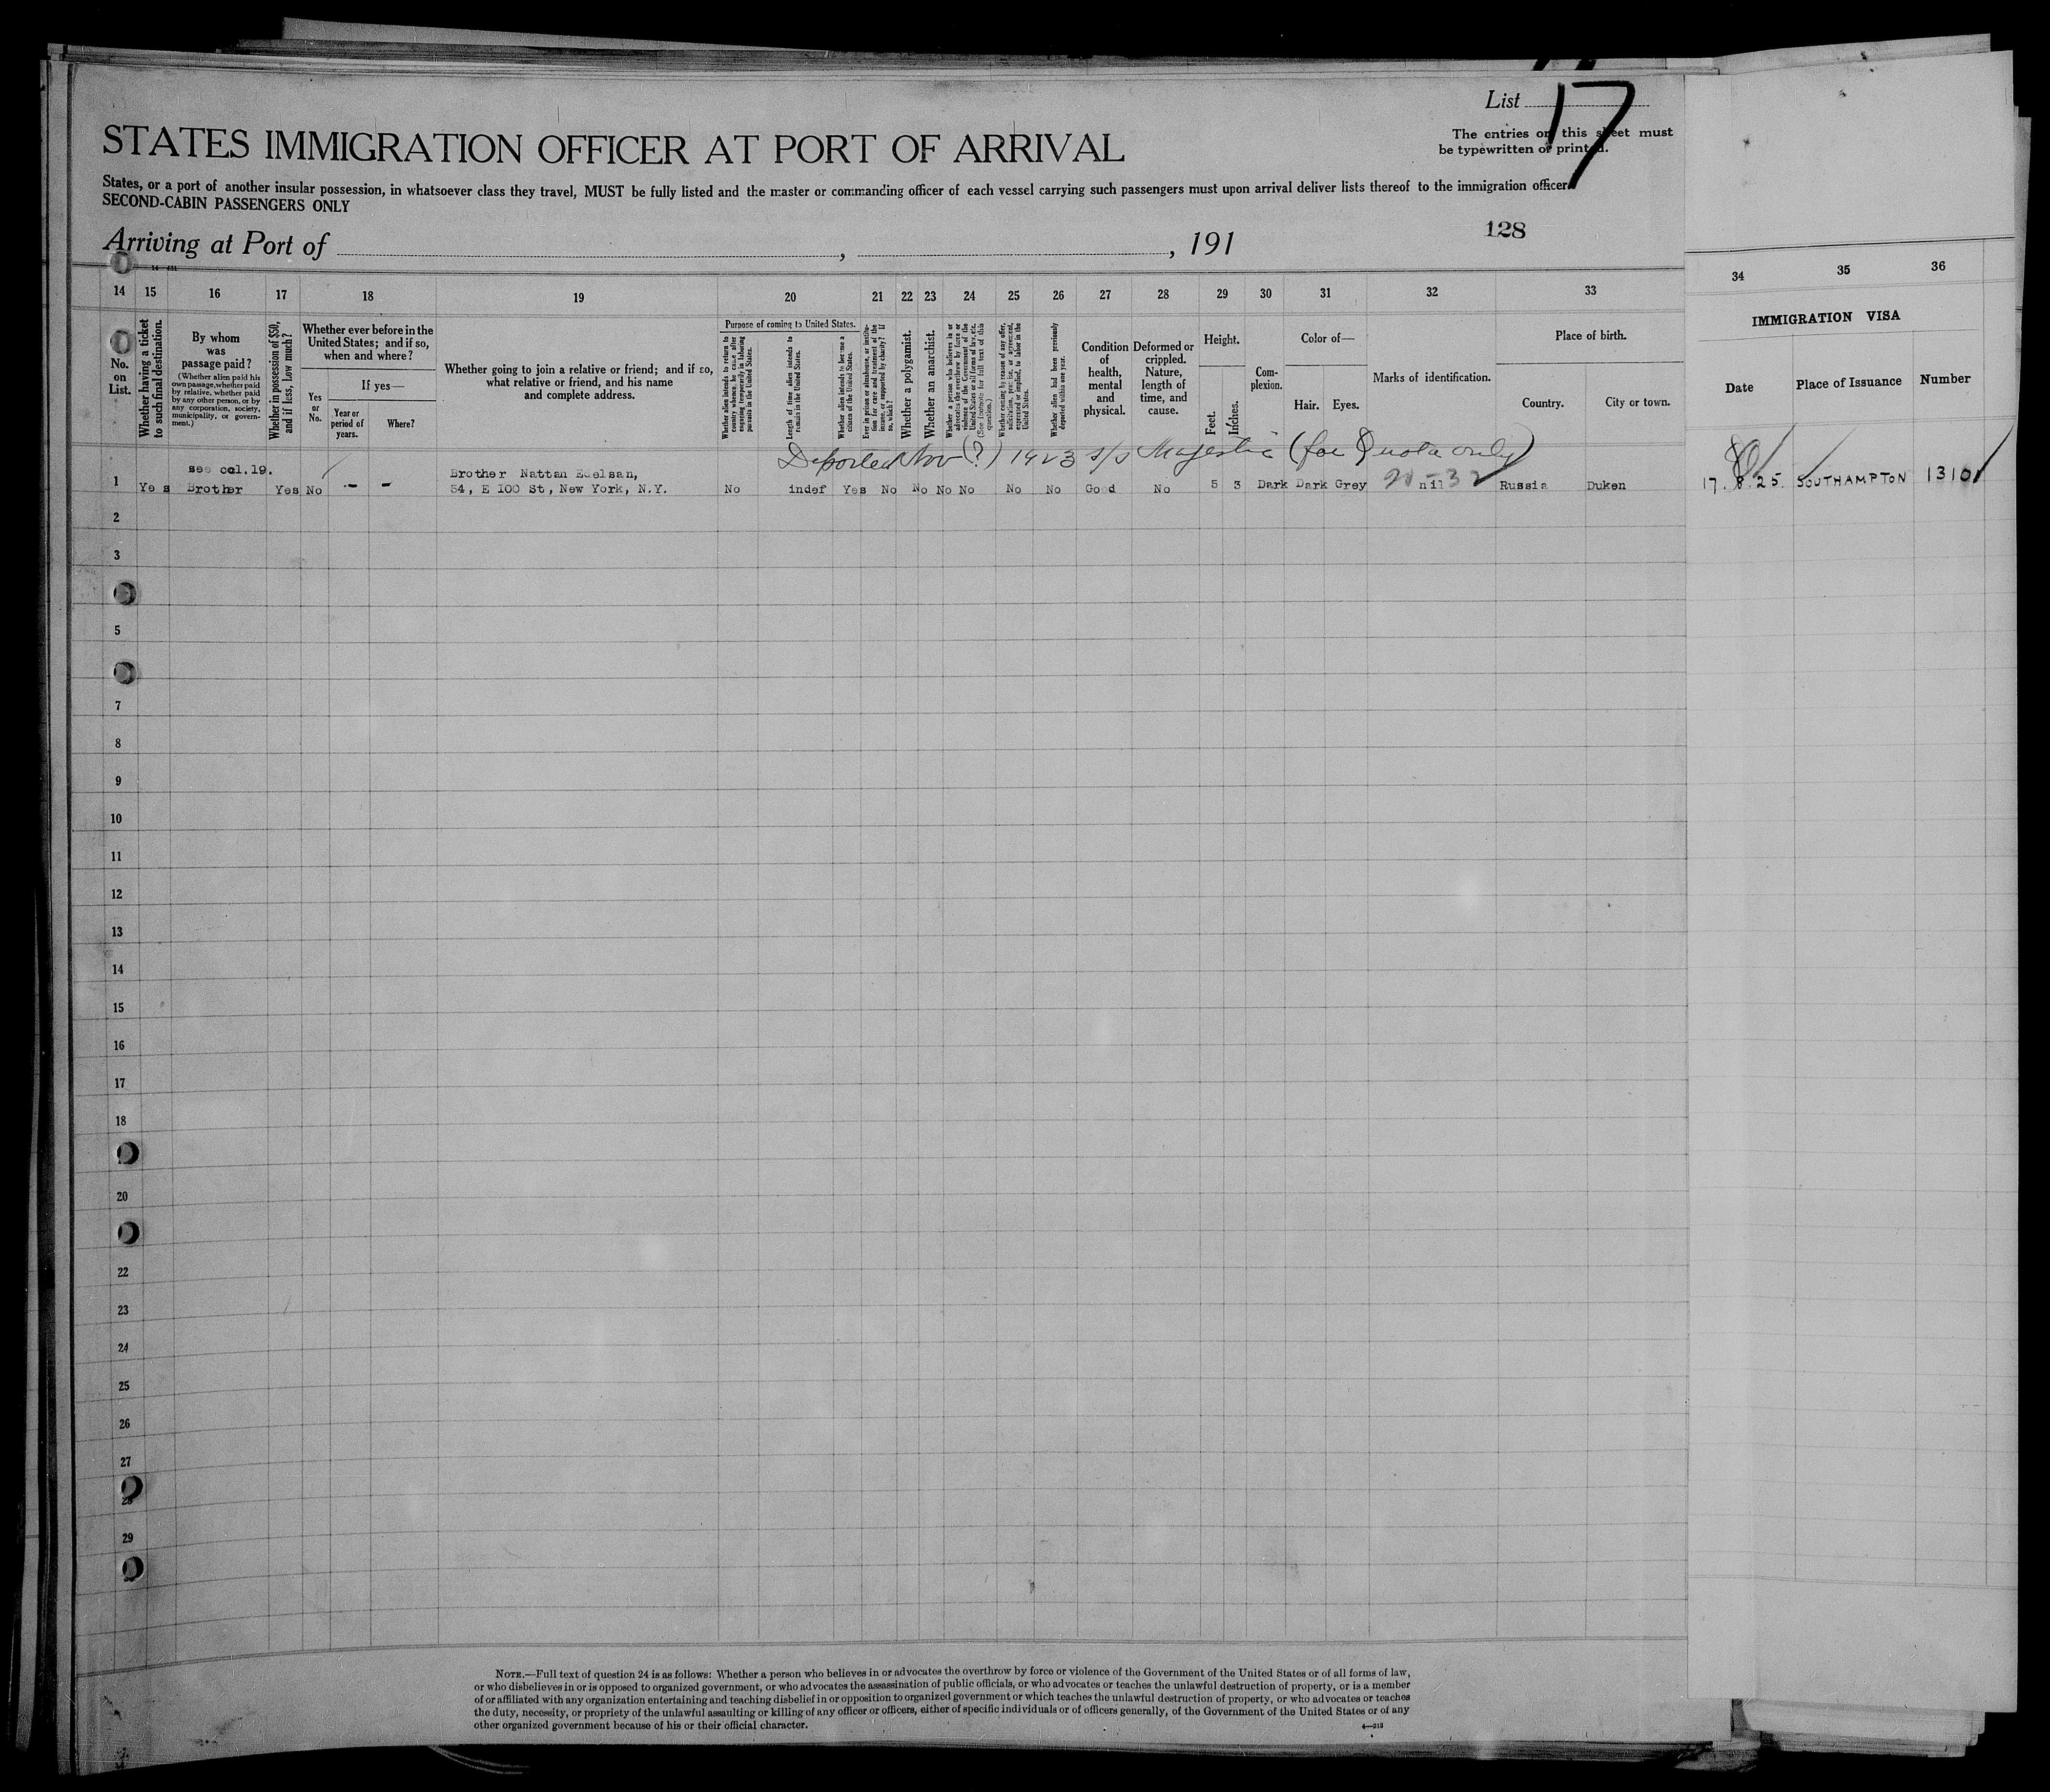 List 17
STATES IMMIGRATION OFFICER AT PORT OF ARRIVAL
The entries on this sheet must
be typewritten or printed.
States, or a port of another insular possession, in whatsoever class they travel, MUST be fully listed and the master or commanding officer of each vessel carrying such passengers must upon arrival deliver lists thereof to the immigration officer
SECOND-CABIN PASSENGERS ONLY
Arriving at Port of , , 191
128
14 15 16 17 18 19 20 21 22 23 24 25 26 27 28 29 30 31 32 33 34 35 36
No. on List.
Whether having a ticket to such final destination.
By whom was passage paid?
(Whether alien paid his own passage, whether paid by relative, whether paid by any other person, or by any corporation, society, municipality, or government.)
Whether in possession of $50, and if less, how much?
Whether ever before in the United States; and if so, when and where?
Yes or No.
If yes—
Year or period of years.
Where?
Whether going to join a relative or friend; and if so, what relative or friend, and his name and complete address.
Purpose of coming to United States.
Whether alien intends to return to country whence he came after engaging temporarily in laboring pursuits in the United States.
Length of time alien intends to remain in the United States.
Whether alien intends to become a citizen of the United States.
Ever in prison or almshouse, or institution for care and treatment of the insane, or supported by charity? If so, which?
Whether a polygamist.
Whether an anarchist.
Whether a person who believes in or advocates the overthrow by force or violence of the Government of the United States or all forms of law, etc. (See footnote for full text of this question.)
Whether coming by reason of any offer, solicitation, promise, or agreement, expressed or implied, to labor in the United States.
Whether alien had been previously deported within one year.
Condition of health, mental and physical.
Deformed or crippled. Nature, length of time, and cause.
Height.
Feet. Inches.
Complexion.
Color of—
Hair. Eyes.
Marks of identification.
Place of birth.
Country. City or town.
IMMIGRATION VISA
Date Place of Issuance Number
Deported Nov (?) 1923 s/s Majestic (for Quota only)
see col.19. Brother Nattan Edelsan,
1 Yes Brother Yes No - - 54, E 100 St, New York, N.Y. No indef Yes No No No No No No Good No 5 3 Dark Dark Grey nil Russia Duken 17. 8. 25. SOUTHAMPTON 1310
2
3
5
7
8
9
10
11
12
13
14
15
16
17
18
20
22
23
24
25
26
27
28
29
NOTE.—Full text of question 24 is as follows: Whether a person who believes in or advocates the overthrow by force or violence of the Government of the United States or of all forms of law,
or who disbelieves in or is opposed to organized government, or who advocates the assassination of public officials, or who advocates or teaches the unlawful destruction of property, or is a member
of or affiliated with any organization entertaining and teaching disbelief in or opposition to organized government or which teaches the unlawful destruction of property, or who advocates or teaches
the duty, necessity, or propriety of the unlawful assaulting or killing of any officer or officers, either of specific individuals or of officers generally, of the Government of the United States or of any
other organized government because of his or their official character.
4—313